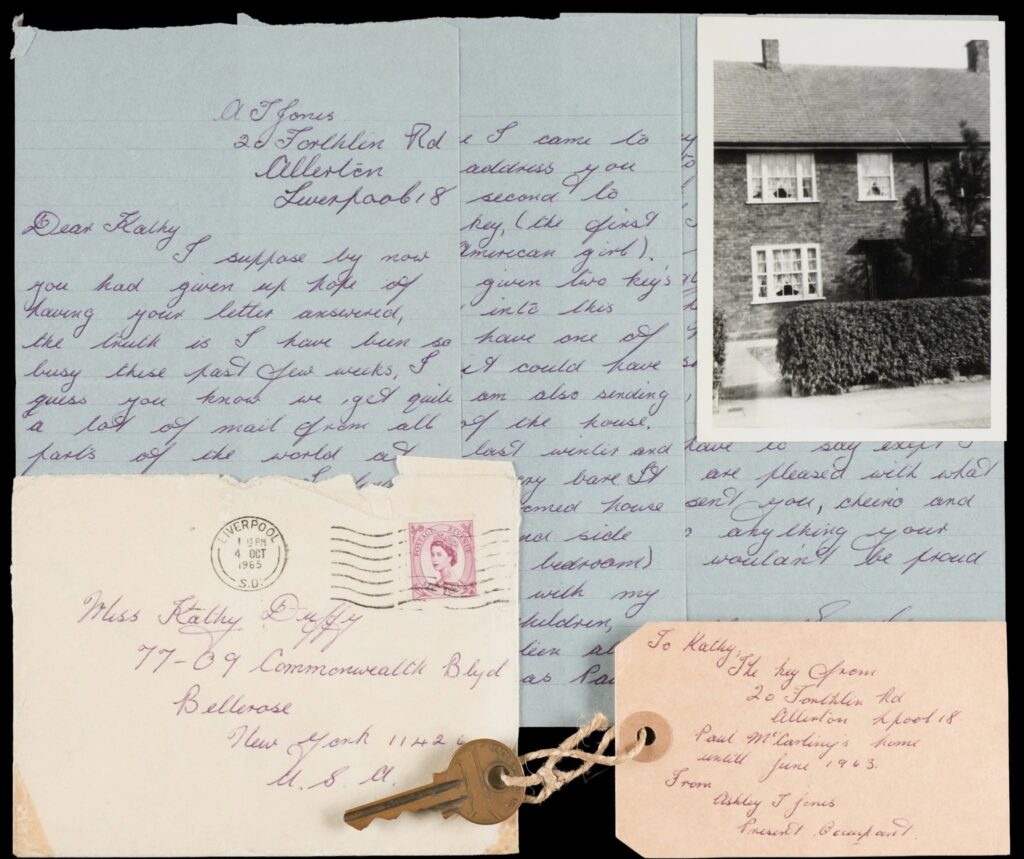 A T Jones
20 Forthlin Rd
Allerton
Liverpool 18
Dear Kathy
I suppose by now
you had given up hope of
having your letter answered,
the truth is I have been so
busy these past few weeks, I
guess you know we get quite
a lot of mail from all
parts of the world at
I came to
address you
second to
key, (the first
American girl).
given two key's
into this
have one of
it could have
am also sending
of the house.
last winter and
bare It
house
side
bedroom)
with my
children,
as
have to say exept I
are pleased with what
sent you, cheerio and
anything your
wouldn't be proud
LIVERPOOL
1 15PM
4 OCT
1965
S.D.
POSTAGE REVENUE
Miss Kathy Duffy
77-09 Commonwealth Blvd
Bellerose
New York 11426
U.S.A.
To Kathy,
The key from
20 Forthlin Rd
Allerton Lpool 18.
Paul McCartney's home
untill June 1963.
From
Ashley T Jones.
Present Occupant.